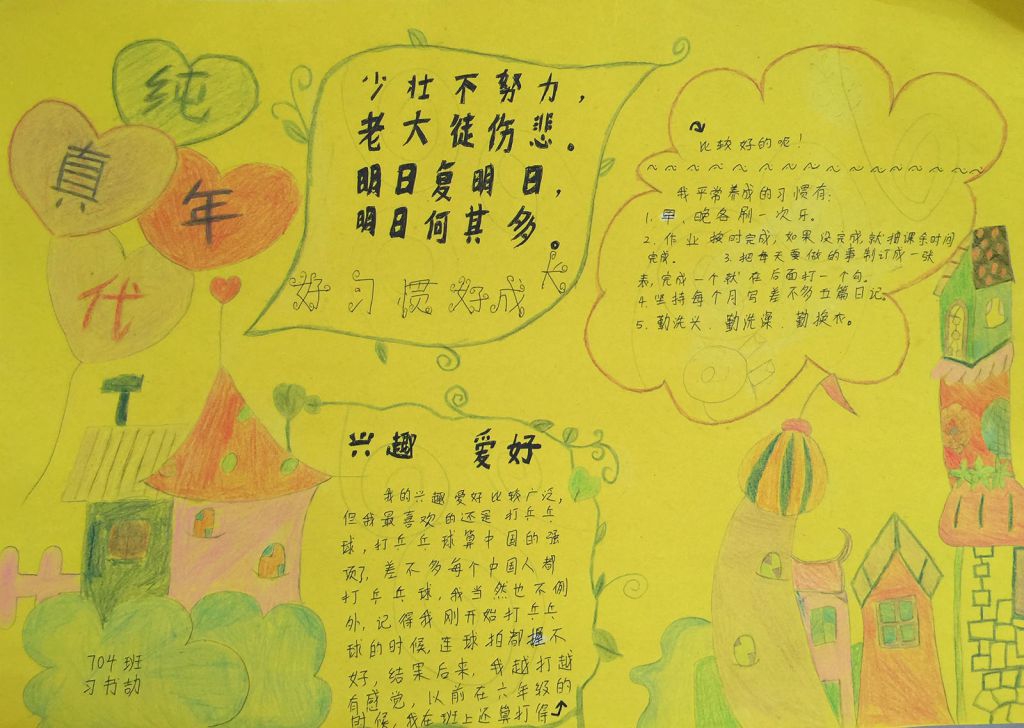 纯
真
年
代
少壮不努力，
老大徒伤悲。
明日复明日，
明日何其多。
好习惯好成长
兴趣 爱好
我的兴趣爱好比较广泛，
但我最喜欢的还是打乒乓
球，打乒乓球算中国的强
项了，差不多每个中国人都
打乒乓球，我当然也不例
外，记得我刚开始打乒乓
球的时候，连球拍都握不
好，结果后来，我越打越
有感觉，以前在六年级的
时候，我在班上还算打得
比较好的呢！
～～～～～～～～～～～～～～
我平常养成的习惯有：
1. 早、晚各刷一次牙。
2. 作业按时完成，如果没完成，就抽课余时间
完成。 3. 把每天要做的事制订成一张
表，完成一个就在后面打一个勾。
4. 坚持每个月写差不多五篇日记。
5. 勤洗头、勤洗澡、勤换衣。
704班
习书劼